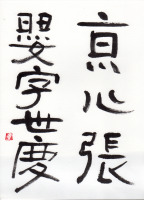 京心張
嬰字世慶